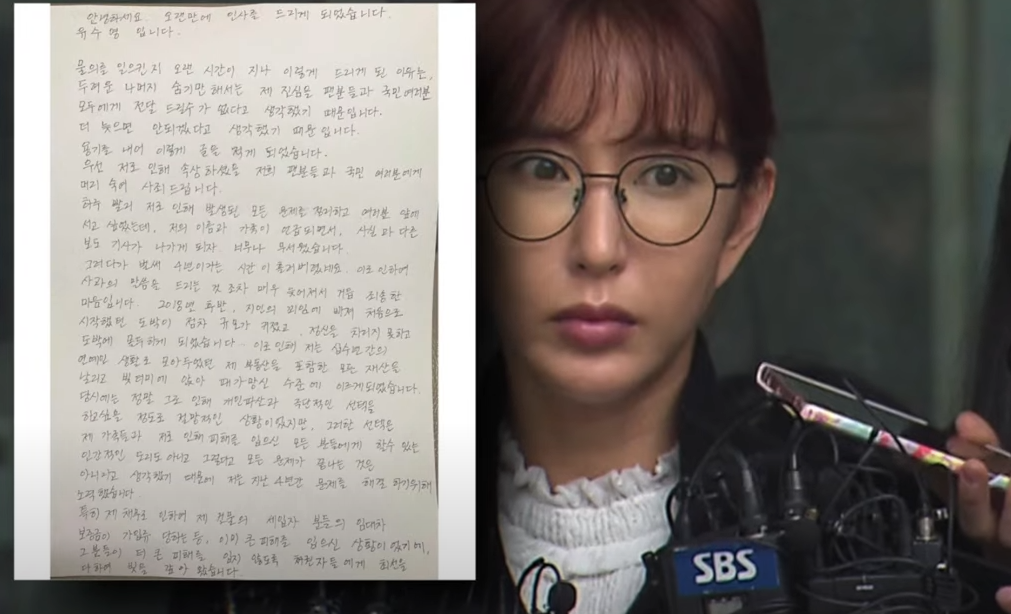 안녕하세요. 오랜만에 인사를 드리게 되었습니다.
유수영 입니다.
물의를 일으킨지 오랜 시간이 지나 이렇게 드리게 된 이유는,
두려운 나머지 숨기만 해서는 제 진심을 팬분들과 국민 여러분
모두에게 전달 드릴수가 없다고 생각했기 때문입니다.
더 늦으면 안되겠다고 생각했기 때문 입니다.
용기를 내어 이렇게 글을 적게 되었습니다.
우선 저로 인해 속상하셨을 저희 팬분들과 국민 여러분에게
머리 숙여 사죄드립니다.
하루 빨리 저로 인해 발생된 모든 문제를 정리하고 여러분 앞에
서고 싶었는데, 저의 이름과 가족이 언급되면서, 사실과 다른
보도 기사가 나가게 되자. 너무나 무서웠습니다
그러다가 벌써 4년이라는 시간이 흘러버렸네요. 이로 인하여
사과의 말씀을 드리는 것 조차 매우 늦어져서 거듭 죄송한
마음입니다. 2018년 후반, 지인의 꾀임에 빠져 처음으로
시작했던 도박이 점차 규모가 커졌고, 정신을 차리지 못하고
도박에 몰두하게 되었습니다.. 이로 인해 저는 십수년간의
연예인 생활로 모아두었던 제 부동산을 포함한 모든 재산을
날리고 빚더미에 앉아 패가망신 수준에 이르게되었습니다.
당시에는 정말 그로 인해 개인파산과 극단적인 선택을
하고싶을 정도로 절망적인 상황이었지만, 그러한 선택은
제 가족들과 저로 인해 피해를 입으신 모든 분들에게 할수 있는
인간적인 도리도 아니고 그렇다고 모든 문제가 끝나는 것은
아니라고 생각했기 때문에 저는 지난 4년간 문제를 해결 하기위해
노력했습니다.
특히 제 채무로 인하여 제 건물의 세입자 분들의 임대차
보증금이 가압류 당하는 등, 이미 큰 피해를 입으신 상황이었기에,
그분들이 더 큰 피해를 입지 않도록 채권자들에게 최선을
다하여 빚을 갚아 왔습니다.
SBS